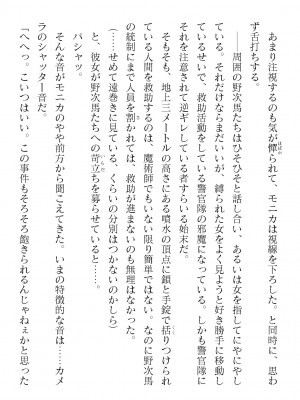 あまり注視するのも気が憚られて、モニカは視線を下ろした。と同時に、思わ
ず舌打ちする。
――周囲の野次馬たちはひそひそと話し合い、あるいは女を指してにやにやし
ている。それだけならまだいいが、縛られた女をよく見ようと好き勝手に移動し
ているせいで、救助活動をしている警官隊の邪魔になっている。しかも警官隊に
それを注意されて逆ギレしている者すらいる始末だ。
そもそも、地上三メートルの高さにある噴水の頂点に鎖と手錠で括りつけられ
ている人間を救助するのは、魔術師でもいない限り簡単ではない。なのに野次馬
の統制にまで人員を割かれては、救助が進まないのも無理はなかった。
(……せめて遠巻きに見ている、くらいの分別はつかないのかしら)
と、彼女が野次馬たちへの苛立ちを募らせていると……。
パシャッ。
そんな音がモニカのやや前方から聞こえてきた。いまの特徴的な音は……カメ
ラのシャッター音だ。
「へへっ。こいつはいい。この事件もそろそろ飽きられるんじゃねぇかと思った